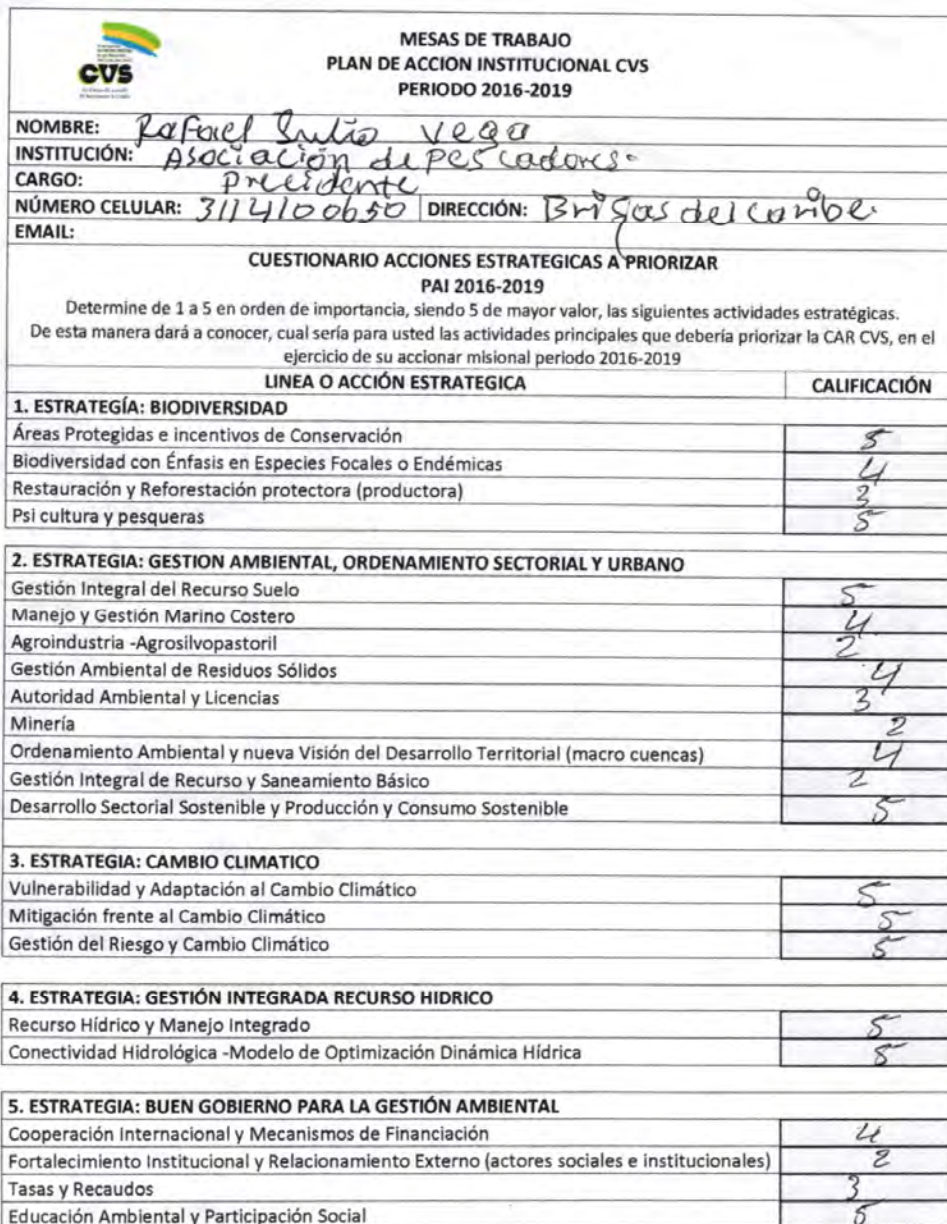 CVS
MESAS DE TRABAJO
PLAN DE ACCION INSTITUCIONAL CVS
PERIODO 2016-2019
NOMBRE: Rafael Julio Vega
INSTITUCIÓN: Asociación de pescadores.
CARGO: Precidente
NÚMERO CELULAR: 3114100650 DIRECCIÓN: Brisas del caribe.
EMAIL:
CUESTIONARIO ACCIONES ESTRATEGICAS A PRIORIZAR
PAI 2016-2019
Determine de 1 a 5 en orden de importancia, siendo 5 de mayor valor, las siguientes actividades estratégicas.
De esta manera dará a conocer, cual sería para usted las actividades principales que debería priorizar la CAR CVS, en el
ejercicio de su accionar misional periodo 2016-2019
LINEA O ACCIÓN ESTRATEGICA CALIFICACIÓN
1. ESTRATEGÍA: BIODIVERSIDAD
Áreas Protegidas e incentivos de Conservación 5
Biodiversidad con Énfasis en Especies Focales o Endémicas 4
Restauración y Reforestación protectora (productora) 3
Psi cultura y pesqueras 5
2. ESTRATEGIA: GESTION AMBIENTAL, ORDENAMIENTO SECTORIAL Y URBANO
Gestión Integral del Recurso Suelo 5
Manejo y Gestión Marino Costero 4
Agroindustria -Agrosilvopastoril 2
Gestión Ambiental de Residuos Sólidos 4
Autoridad Ambiental y Licencias 3
Minería 2
Ordenamiento Ambiental y nueva Visión del Desarrollo Territorial (macro cuencas) 4
Gestión Integral de Recurso y Saneamiento Básico 2
Desarrollo Sectorial Sostenible y Producción y Consumo Sostenible 5
3. ESTRATEGIA: CAMBIO CLIMATICO
Vulnerabilidad y Adaptación al Cambio Climático 5
Mitigación frente al Cambio Climático 5
Gestión del Riesgo y Cambio Climático 5
4. ESTRATEGIA: GESTIÓN INTEGRADA RECURSO HIDRICO
Recurso Hídrico y Manejo Integrado 5
Conectividad Hidrológica -Modelo de Optimización Dinámica Hídrica 5
5. ESTRATEGIA: BUEN GOBIERNO PARA LA GESTIÓN AMBIENTAL
Cooperación Internacional y Mecanismos de Financiación 4
Fortalecimiento Institucional y Relacionamiento Externo (actores sociales e institucionales) 2
Tasas y Recaudos 3
Educación Ambiental y Participación Social 5